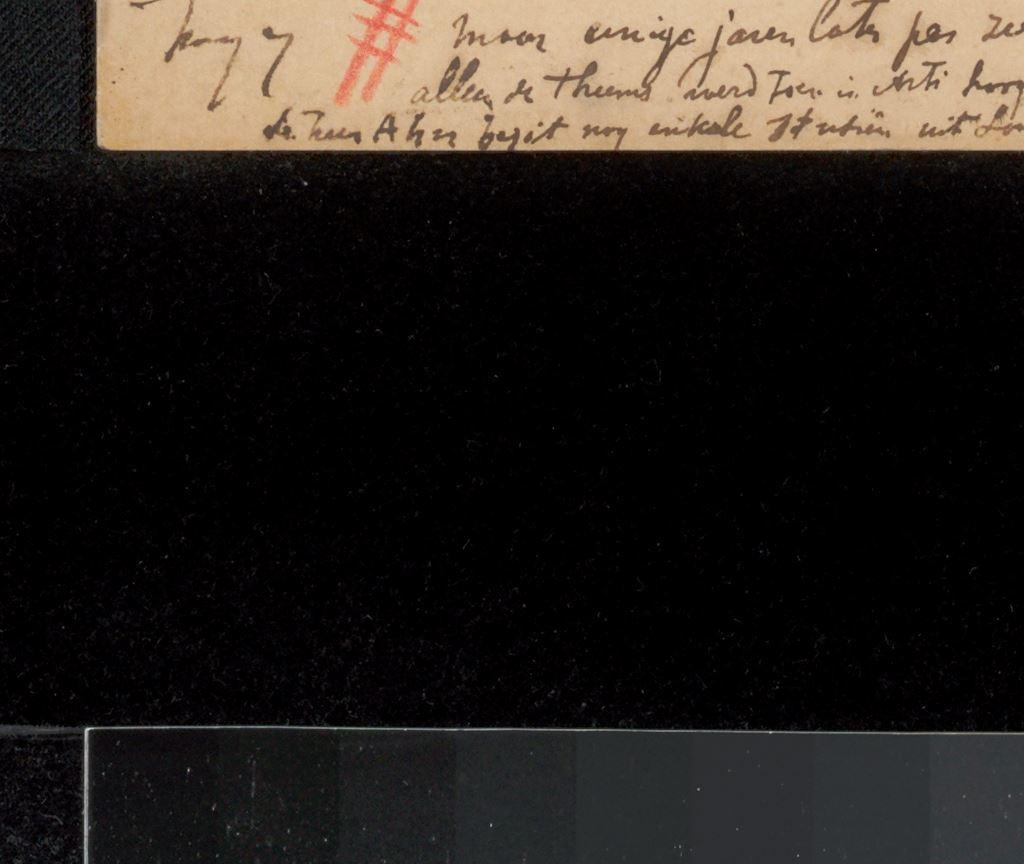 maar eenige jaren later per
allen de Theems werd toen in Arti
de heer Ahn bezit nog enkele Studiën uit